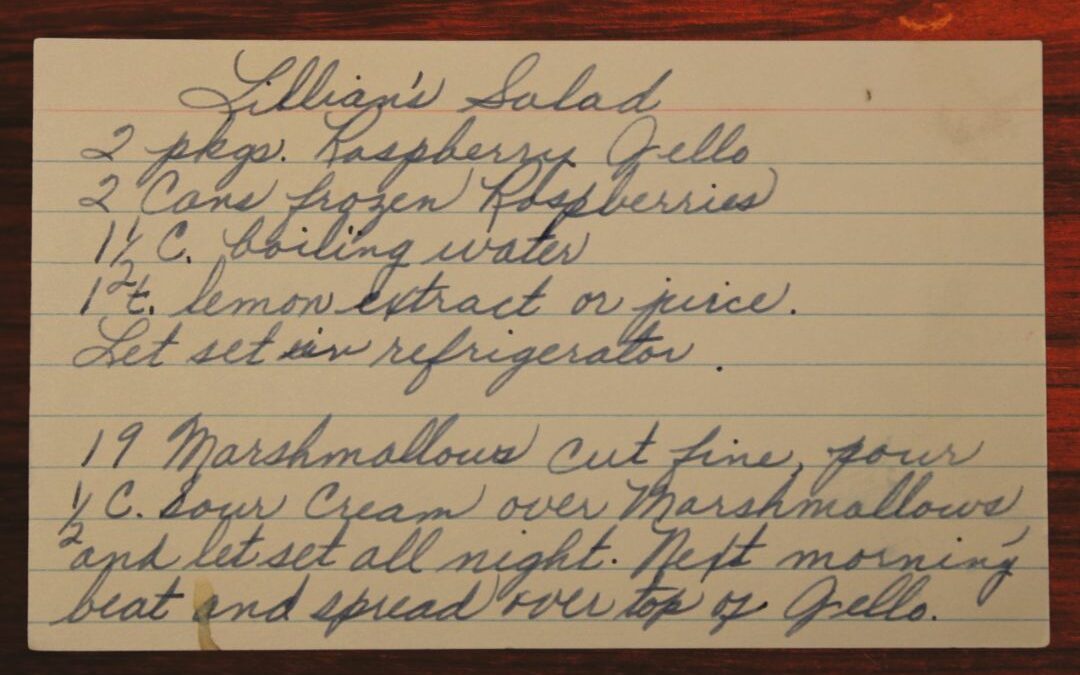 Lillian's Salad
2 pkgs. Raspberry Jello
2 Cans frozen Raspberries
1 1/2 C. boiling water
1 t. lemon extract or juice.
Let set in refrigerator.
19 Marshmallows cut fine, pour
1/2 C. Sour Cream over Marshmallows
and let set all night. Next morning
beat and spread over top of Jello.